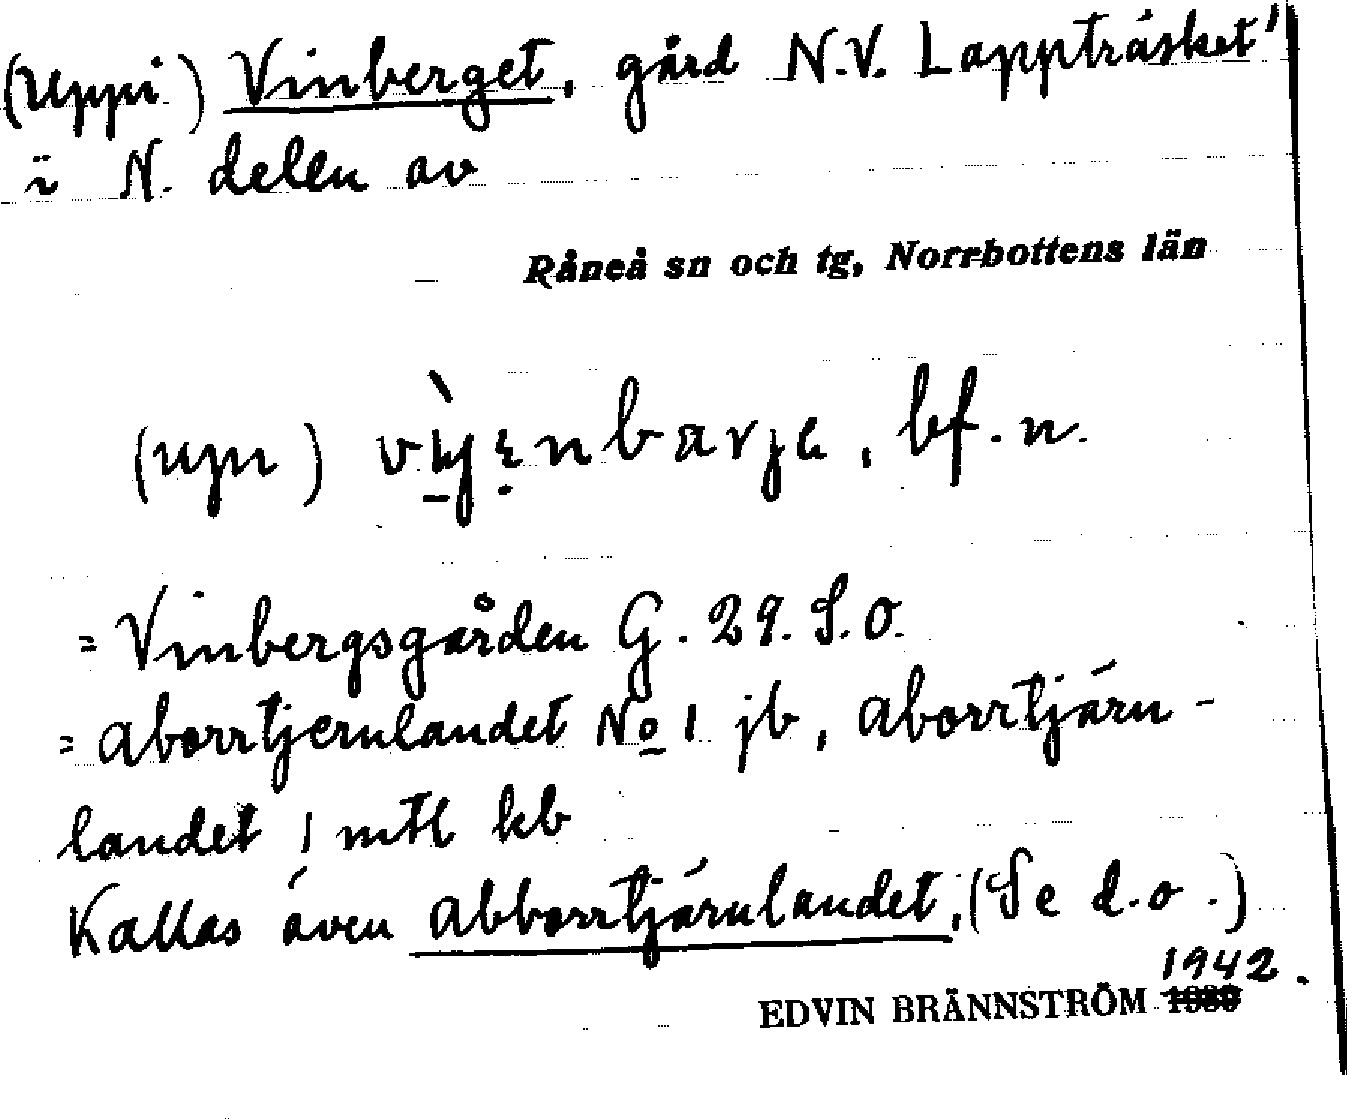 (Uppi) Vinberget, gård N.V. Lappträsket
i N. delen av
Råneå sn och tg, Norrbottens län
(upn) , bf. n.
= Vinbergsgården G. 29. S.O.
= Aborrtjernlandet No 1 jb, Aborrtjärn-
landet 1 mtl kb
Kallas även Abborrtjärnlandet, (Se d.o.)
1942.
EDVIN BRÄNNSTRÖM